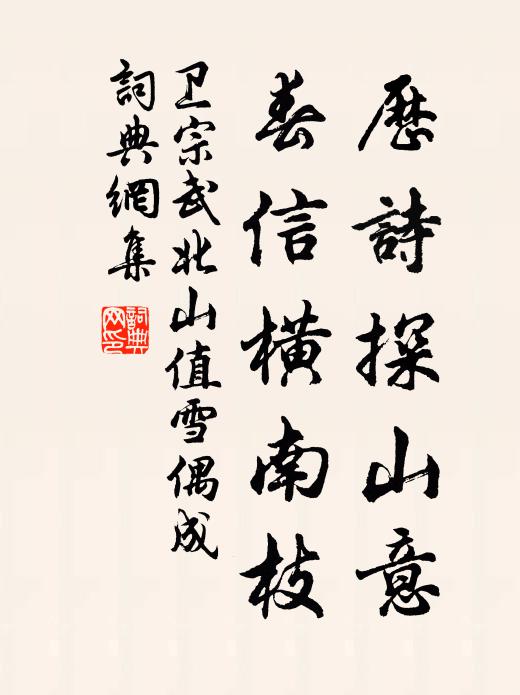 歷詩探山意
春信橫南枝
卫宗武北山值雪偶成
詞典網集
詞典网印